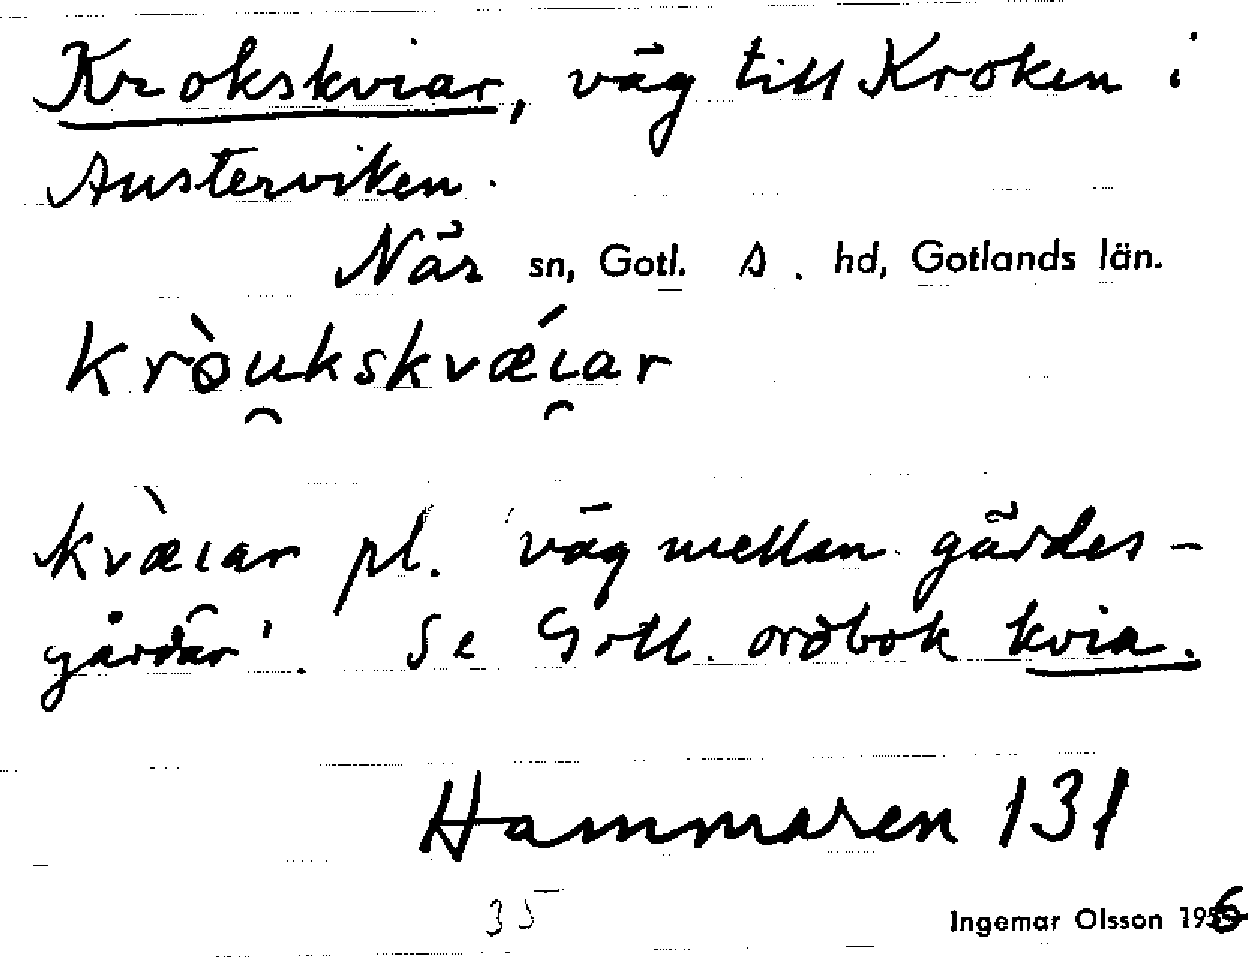 Krokskviar, väg till Kroken i
Austerviken.
När sn, Gotl. S. hd, Gotlands län.
kròu̯kskvǽı̯ar
kvæ̀ıar pl. 'väg mellan gärdes-
gårdar'. Se Gotl. ordbok kvia.
Hammaren 131
35
Ingemar Olsson 1956